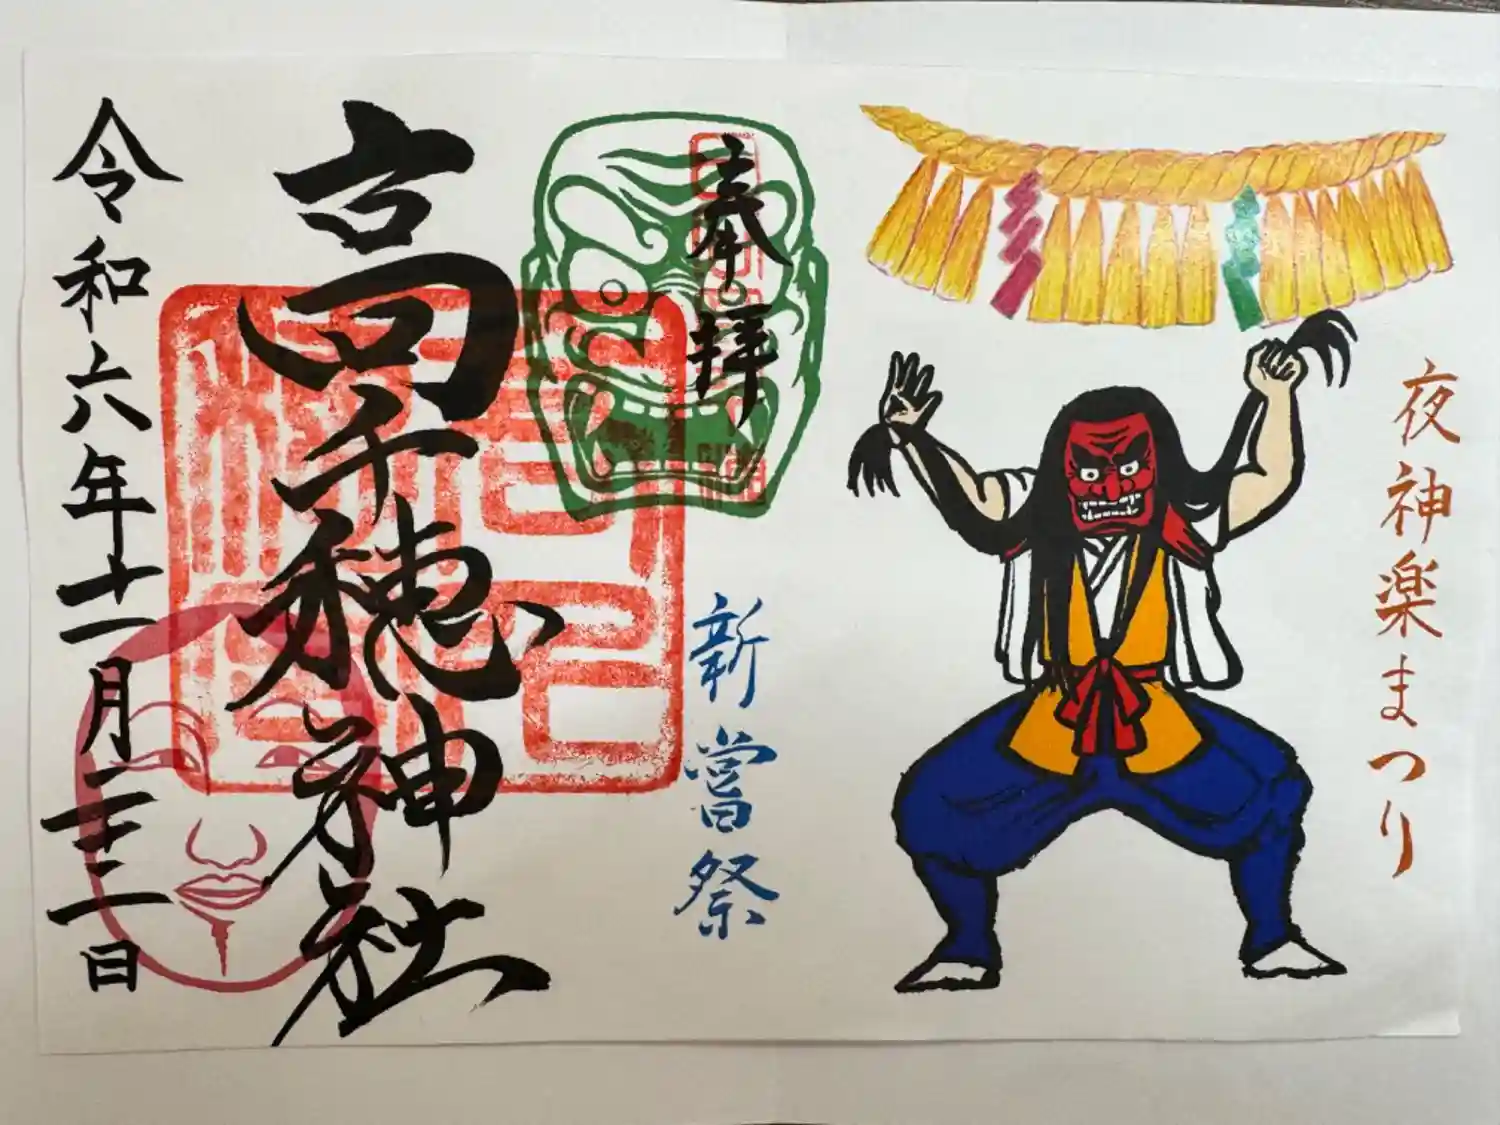 夜神楽まつり
奉拝
新嘗祭
高千穂神社
令和六年十一月二十三日